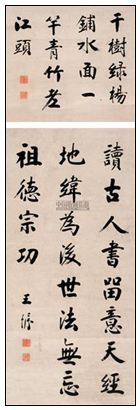 千樹綠楊
鋪水面一
竿青竹老
江頭
讀古人書留意天經
地緯為後世法無忘
祖德宗功
王